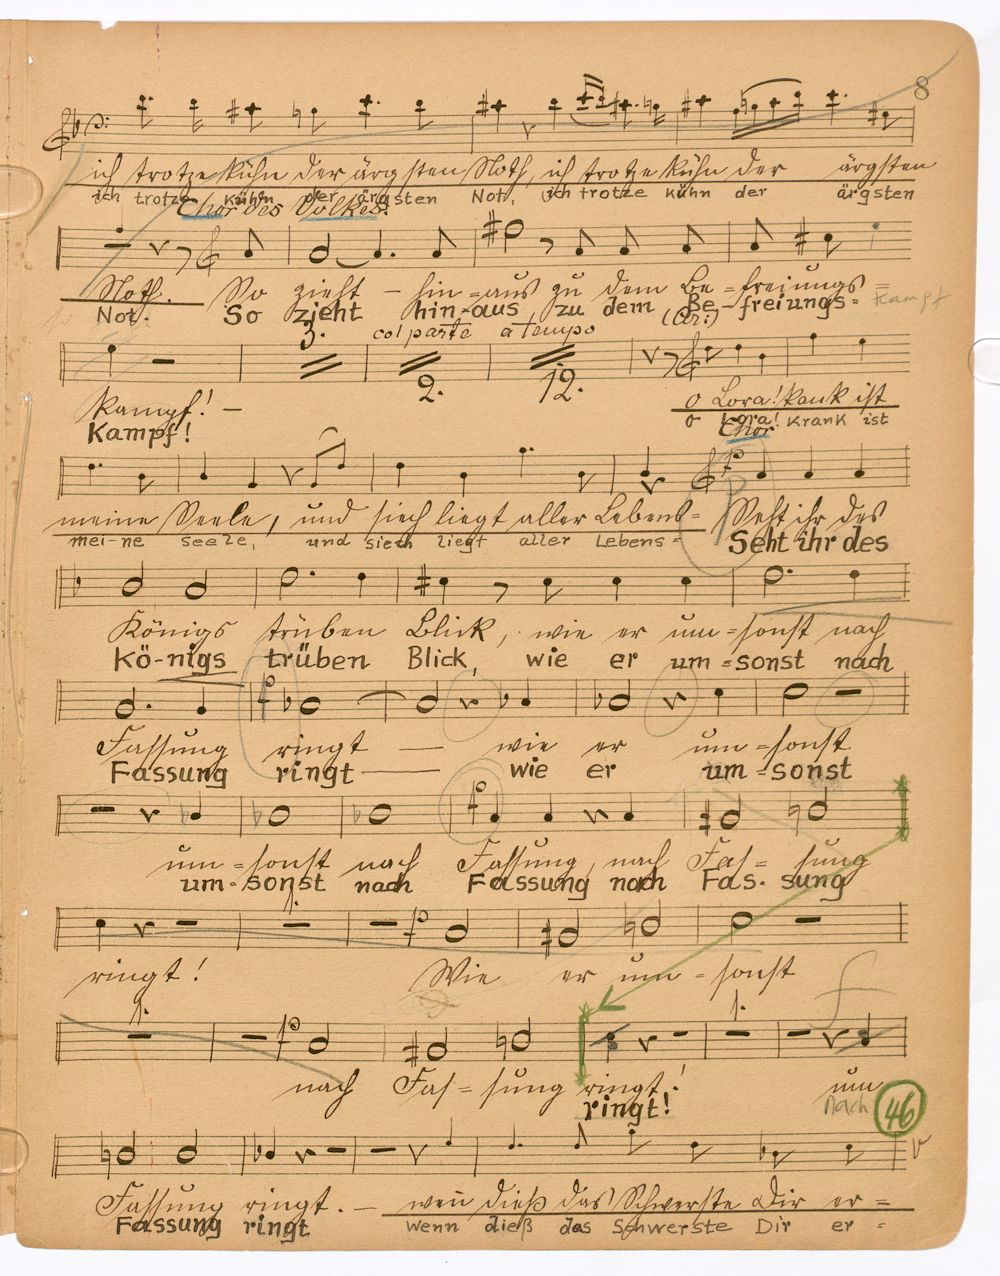 8
ich trotze kühn der ärgsten Noth, ich trotze kühn der ärgsten
ich trotze kühn der ärgsten Not, ich trotze kühn der ärgsten
Chor des Volkes:
Noth. So zieht - hin-aus zu dem Be-freiungs=
Not. So zieht hin-aus zu dem Be-freiungs= Kampf
3. col parte a tempo (Ar:)
2. 12.
Kampf! - o Lora! krank ist
Kampf! o Lora! Krank ist
Chor.
meine Seele, und siech liegt aller Lebens= Seht ihr des
mei-ne seele, und siech liegt aller Lebens= Seht ihr des
Königs trüben Blick, wie er um=sonst nach
Kö-nigs trüben Blick, wie er um=sonst nach
Fassung ringt — wie er um=sonst
Fassung ringt — wie er um=sonst
um=sonst nach Fassung, nach Fas= sung
um-sonst nach Fassung nach Fas. sung
1.
ringt! Wie er um=sonst
f
1. 1.
nach Fas=sung ringt! um
ringt! Nach 46
Fassung ringt. — weñ dieß das Schwerste Dir er=
Fassung ringt wenn dieß das Schwerste Dir er =